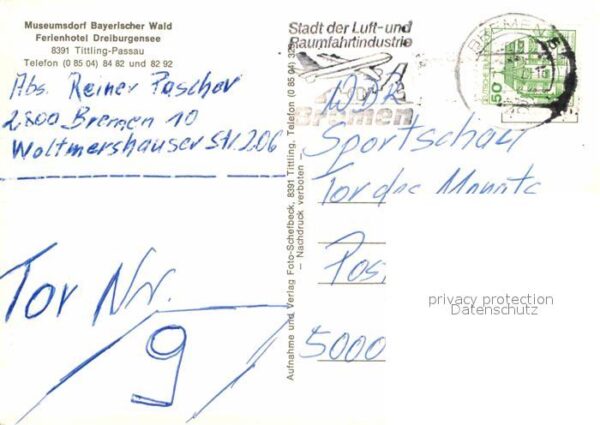 Museumsdorf Bayerischer Wald
Ferienhotel Dreiburgensee
8391 Tittling-Passau
Telefon (0 85 04) 84 82 und 82 92
Abs. Reiner Paschor
2800 Bremen 10
Woltmershauser Str. 206
Tor Nr.
9
Aufnahme und Verlag Foto-Schefbeck, 8391 Tittling, Telefon (0 85 04)
– Nachdruck verboten –
Stadt der Luft- und
Raumfahrtindustrie
Bremen
BREMEN
50
WDR
Sportschau
Tor des Monats
Pos
5000
privacy protection
Datenschutz